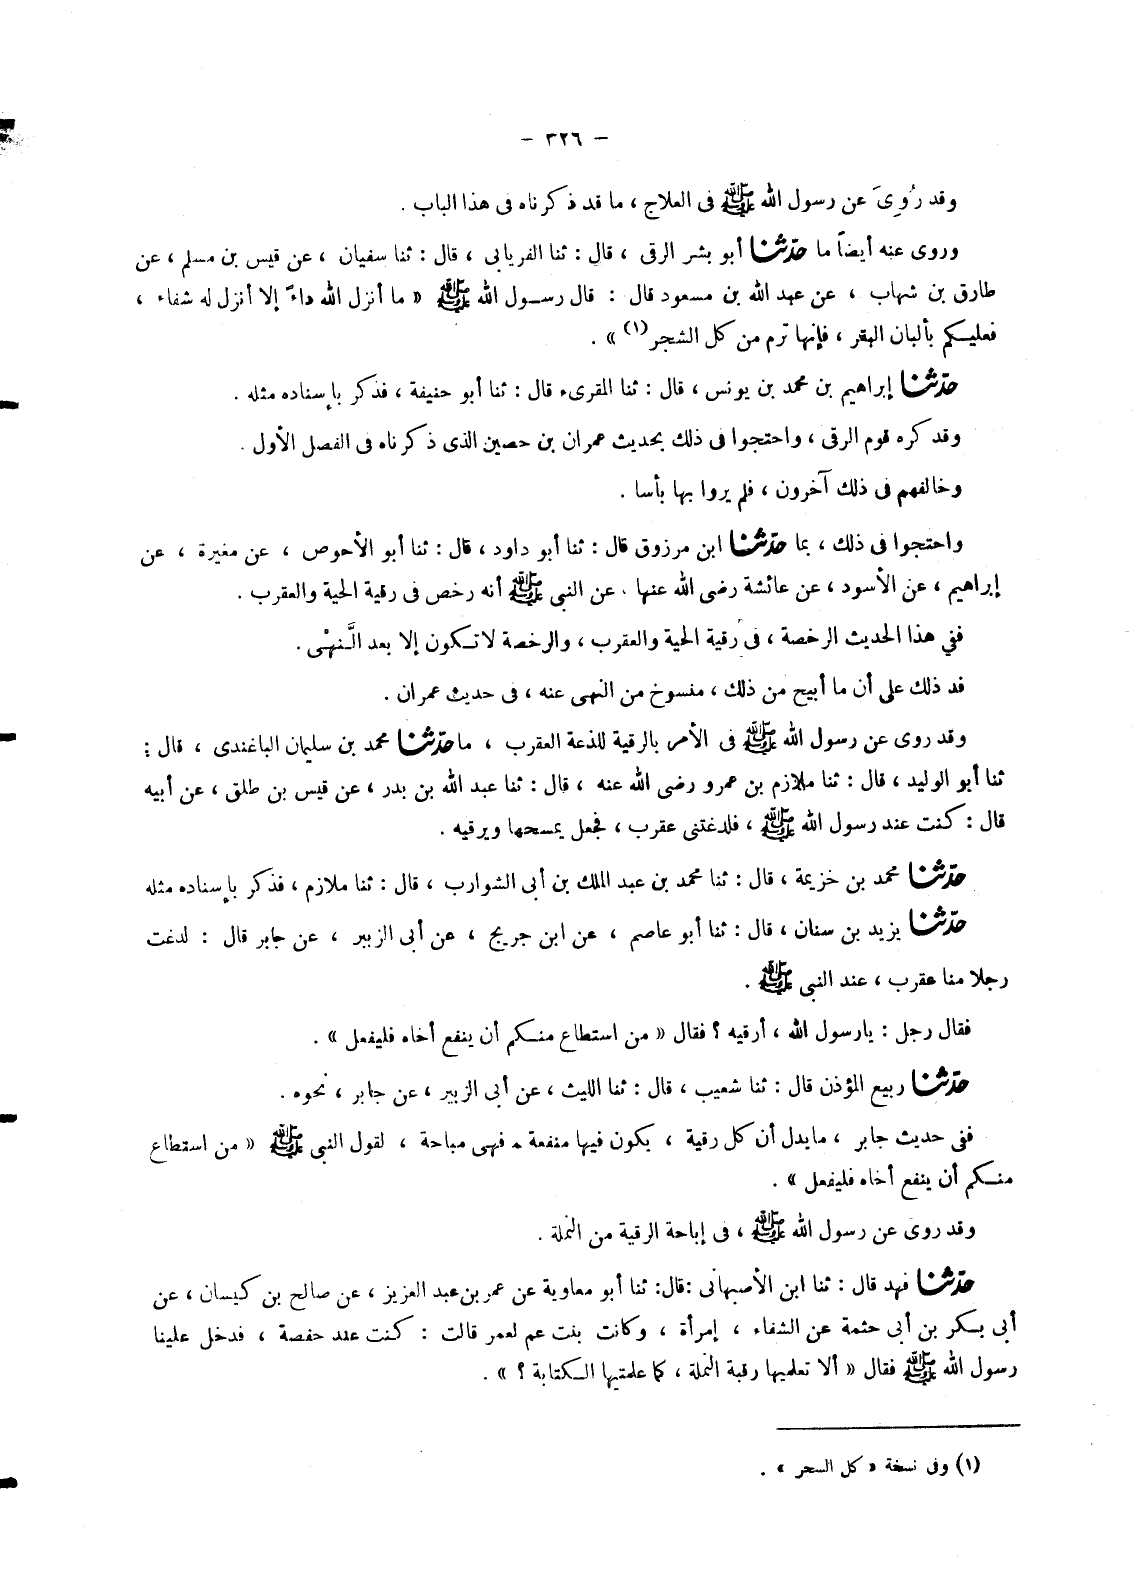 – ٣٢٦ –
وقد رُوِىَ عن رسول الله ﷺ فى العلاج ، ما قد ذكرناه فى هذا الباب .
وروى عنه أيضاً ما حدّثنا أبو بشر الرقى ، قال : ثنا الفريابى ، قال : ثنا سفيان ، عن قيس بن مسلم ، عن
طارق بن شهاب ، عن عبد الله بن مسعود قال : قال رسول الله ﷺ « ما أنزل الله داءً إلا أنزل له شفاء ،
فعليكم بألبان البقر ، فإنها ترم من كل الشجر(١) » .
حدّثنا إبراهيم بن محمد بن يونس ، قال : ثنا المقرىء قال : ثنا أبو حنيفة ، فذكر بإسناده مثله .
وقد كره قوم الرقى ، واحتجوا فى ذلك بحديث عمران بن حصين الذى ذكرناه فى الفصل الأول .
وخالفهم فى ذلك آخرون ، فلم يروا بها بأسا .
واحتجوا فى ذلك ، بما حدّثنا ابن مرزوق قال : ثنا أبو داود ، قال : ثنا أبو الأحوص ، عن مغيرة ، عن
إبراهيم ، عن الأسود ، عن عائشة رضى الله عنها ، عن النبى ﷺ أنه رخص فى رقية الحية والعقرب .
ففى هذا الحديث الرخصة ، فى رقية الحية والعقرب ، والرخصة لا تكون إلا بعد النَّهْى .
فد ذلك على أن ما أبيح من ذلك ، منسوخ من النهى عنه ، فى حديث عمران .
وقد روى عن رسول الله ﷺ فى الأمر بالرقية للذعة العقرب ، ما حدّثنا محمد بن سليمان الباغندى ، قال :
ثنا أبو الوليد ، قال : ثنا ملازم بن عمرو رضى الله عنه ، قال : ثنا عبد الله بن بدر ، عن قيس بن طلق ، عن أبيه
قال : كنت عند رسول الله ﷺ ، فلدغتنى عقرب ، فجعل يمسحها ويرقيه .
حدّثنا محمد بن خزيمة ، قال : ثنا محمد بن عبد الملك بن أبى الشوارب ، قال : ثنا ملازم ، فذكر بإسناده مثله
حدّثنا يزيد بن سنان ، قال : ثنا أبو عاصم ، عن ابن جريج ، عن أبى الزبير ، عن جابر قال : لدغت
رجلا منا عقرب ، عند النبى ﷺ .
فقال رجل : يارسول الله ، أرقيه ؟ فقال « من استطاع منكم أن ينفع أخاه فليفعل » .
حدّثنا ربيع المؤذن قال : ثنا شعيب ، قال : ثنا الليث ، عن أبى الزبير ، عن جابر ، نحوه .
ففى حديث جابر ، مايدل أن كل رقية ، يكون فيها منفعة ، فهى مباحة ، لقول النبى ﷺ « من استطاع
منكم أن ينفع أخاه فليفعل » .
وقد روى عن رسول الله ﷺ ، فى إباحة الرقية من النملة .
حدّثنا فهد قال : ثنا ابن الأصبهانى :قال: ثنا أبو معاوية عن عمر بن عبد العزيز ، عن صالح بن كيسان ، عن
أبى بكر بن أبى حثمة عن الشفاء ، إمرأة ، وكانت بنت عم لعمر قالت : كنت عند حفصة ، فدخل علينا
رسول الله ﷺ فقال « ألا تعلميها رقية النملة ، كما علمتيها الكتابة ؟ » .
(١) وفى نسخة « كل السحر » .